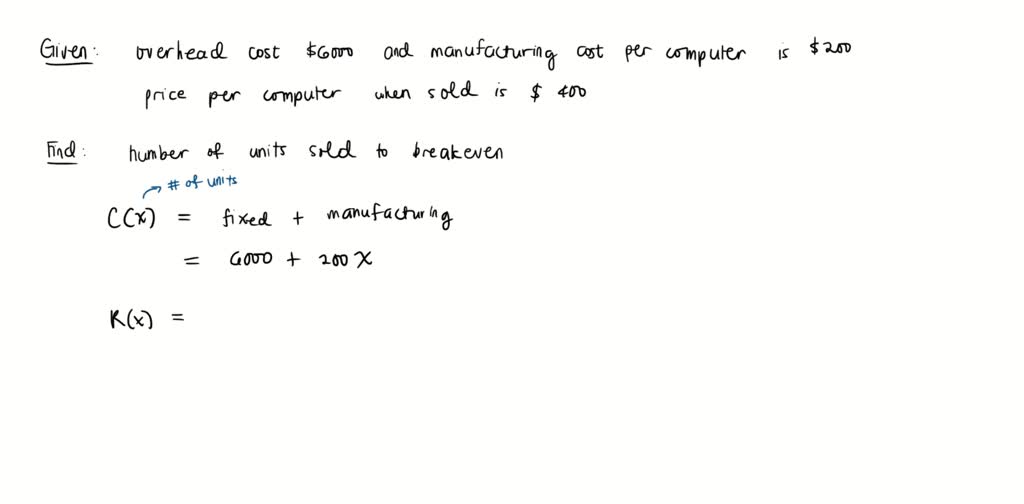 Given: overhead cost $6000 and manufacturing cost per computer is $200
price per computer when sold is $ 400
Find: number of units sold to breakeven
→ # of units
C(x) = fixed + manufacturing
= 6000 + 200x
R(x) =